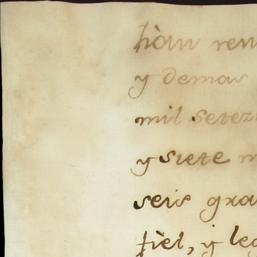 han ren
y demas
mil setez
y siete m
seis gra
fiel, y leg